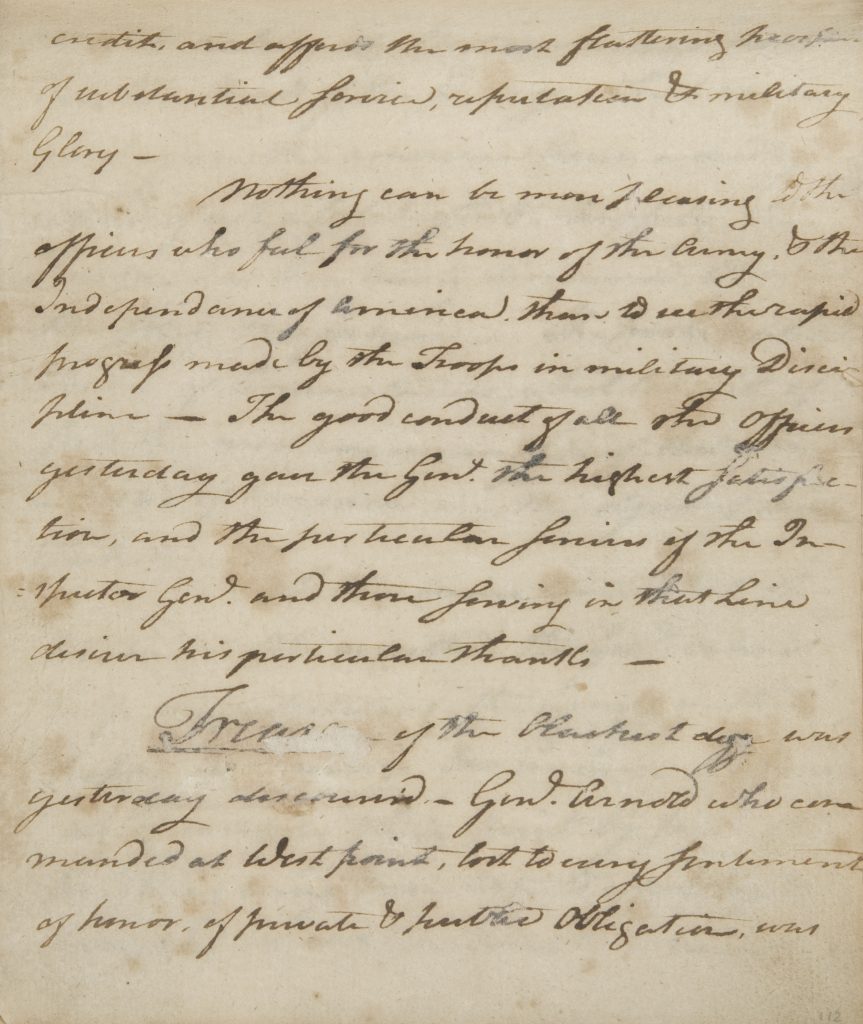 credit, and affords the most flattering
of substantial Service, reputation & military
Glory —
Nothing can be more pleasing to the
officers who feel for the honor of the Army, & the
Independance of America, than to see the rapid
progress made by the Troops in military Disci-
pline — The good conduct of all the Officers
yesterday gave the Genl. the highest Satisfac-
tion, and the particular Services of the In-
=spector Genl. and those Serving in that Line
deserve his particular thanks —
Treason of the blackest dye was
yesterday discovered. — Genl. Arnold who com
manded at West point, lost to every Sentiment
of honor, of private & public Obligation, was
112